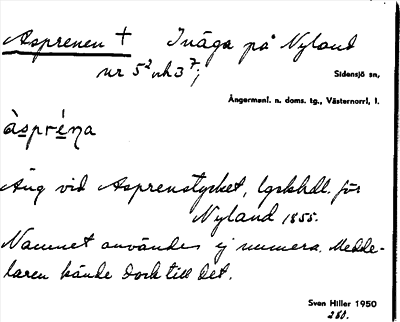 Asprenen † Inäga på Nyland
nr 5² och 3⁷;
Sidensjö sn,
Ångermanl. n. doms. tg., Västernorrl. l.
àspréna
Äng vid Asprenstycket, lgskhdl. för
Nyland 1855.
Namnet användes ej numera. Medde-
laren kände dock till det.
Sven Hiller 1950
280.